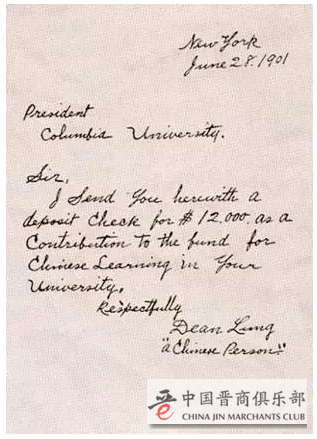 New York
June 28. 1901
President
Columbia University.
Sir,
I Send You herewith a
deposit check for $12.000. as a
Contribution to the fund for
Chinese Learning in Your
University.
Respectfully
Dean Lung
"a Chinese Person."
中国晋商俱乐部
CHINA JIN MARCHANTS CLUB